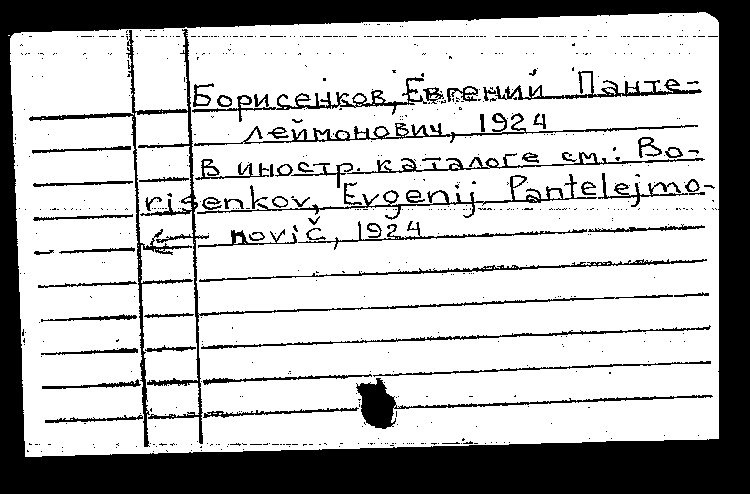 Борисенков, Евгений Панте-
леймонович, 1924
В иностр. каталоге см.: Bo-
risenkov, Evgenij Pantelejmo-
← novič, 1924